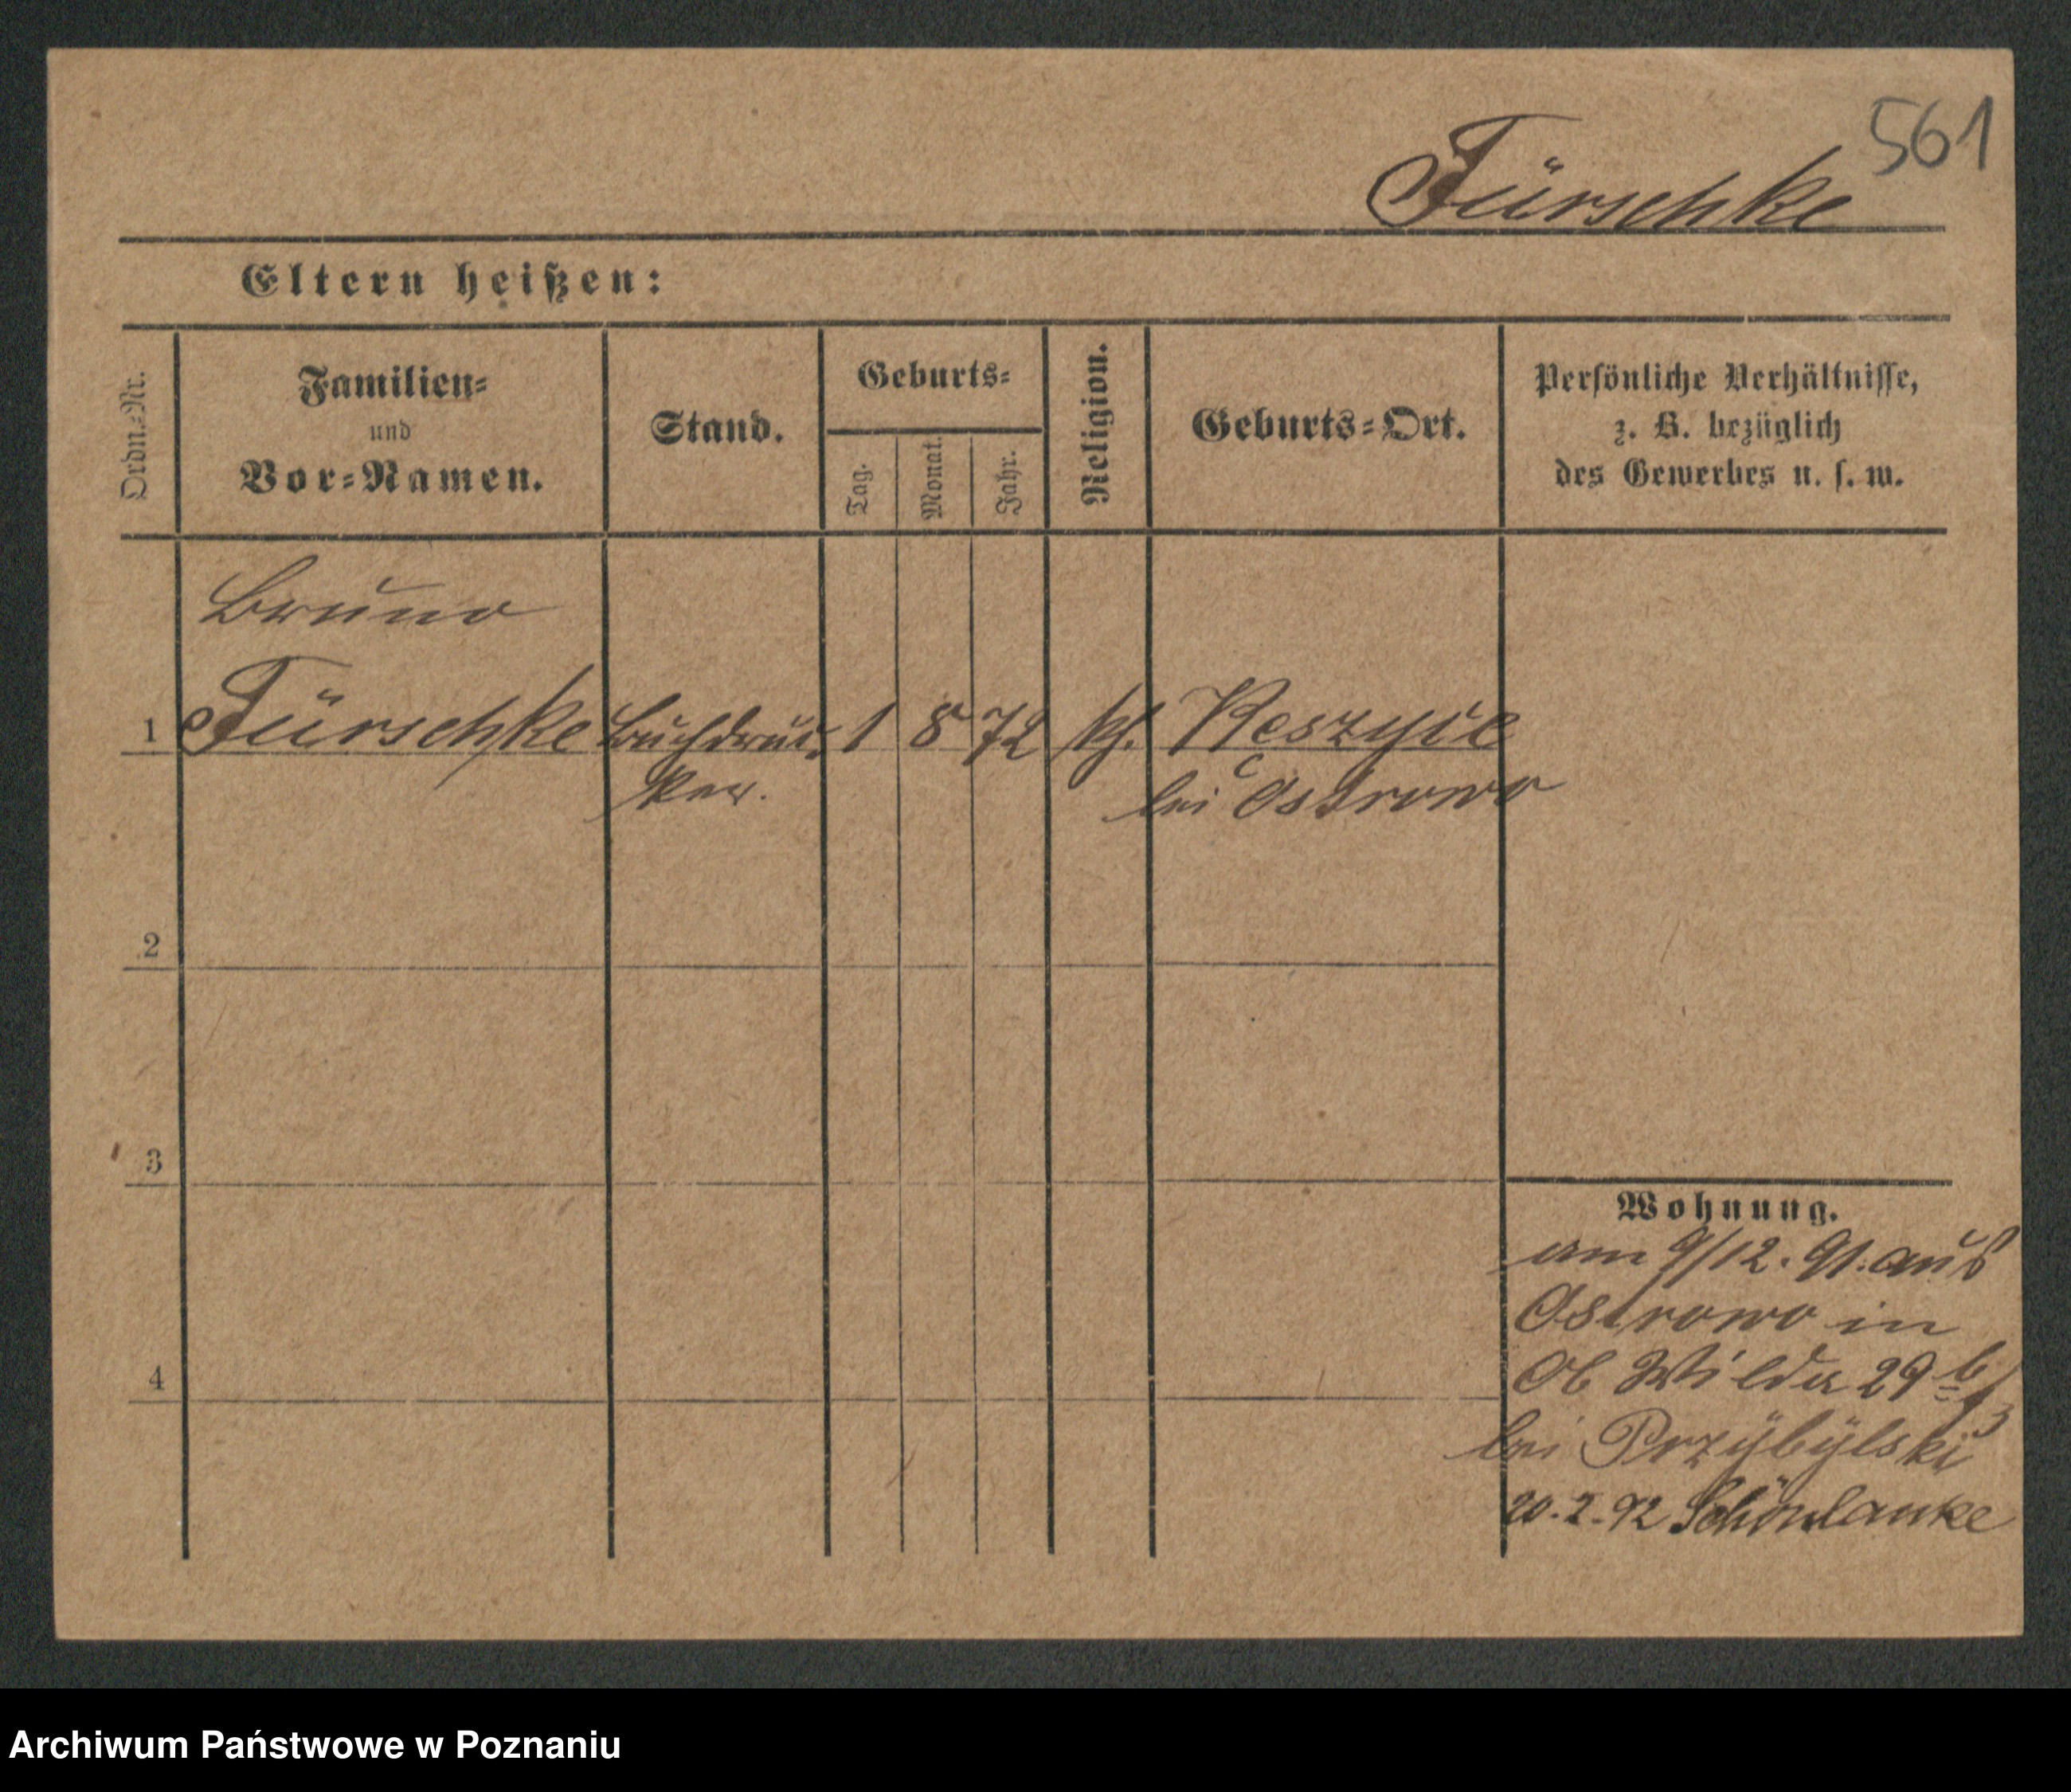 561
Türschke
Eltern heißen:
Ordn.-Nr.
Familien-
und
Vor-Namen.
Stand.
Geburts-
Tag.
Monat.
Jahr.
Religion.
Geburts-Ort.
Persönliche Verhältnisse,
z. B. bezüglich
des Gewerbes u. s. w.
Bruno
1 Türschke Buchdruc- 1 8 72 kth.
ker. bei Ostrowo
2
3
4
Wohnung.
am 9/12. 91. aus
Ostrowo in
Ob Wilda 29 b
bei Przybylski
20.2.92 Schönlanke
Archiwum Państwowe w Poznaniu